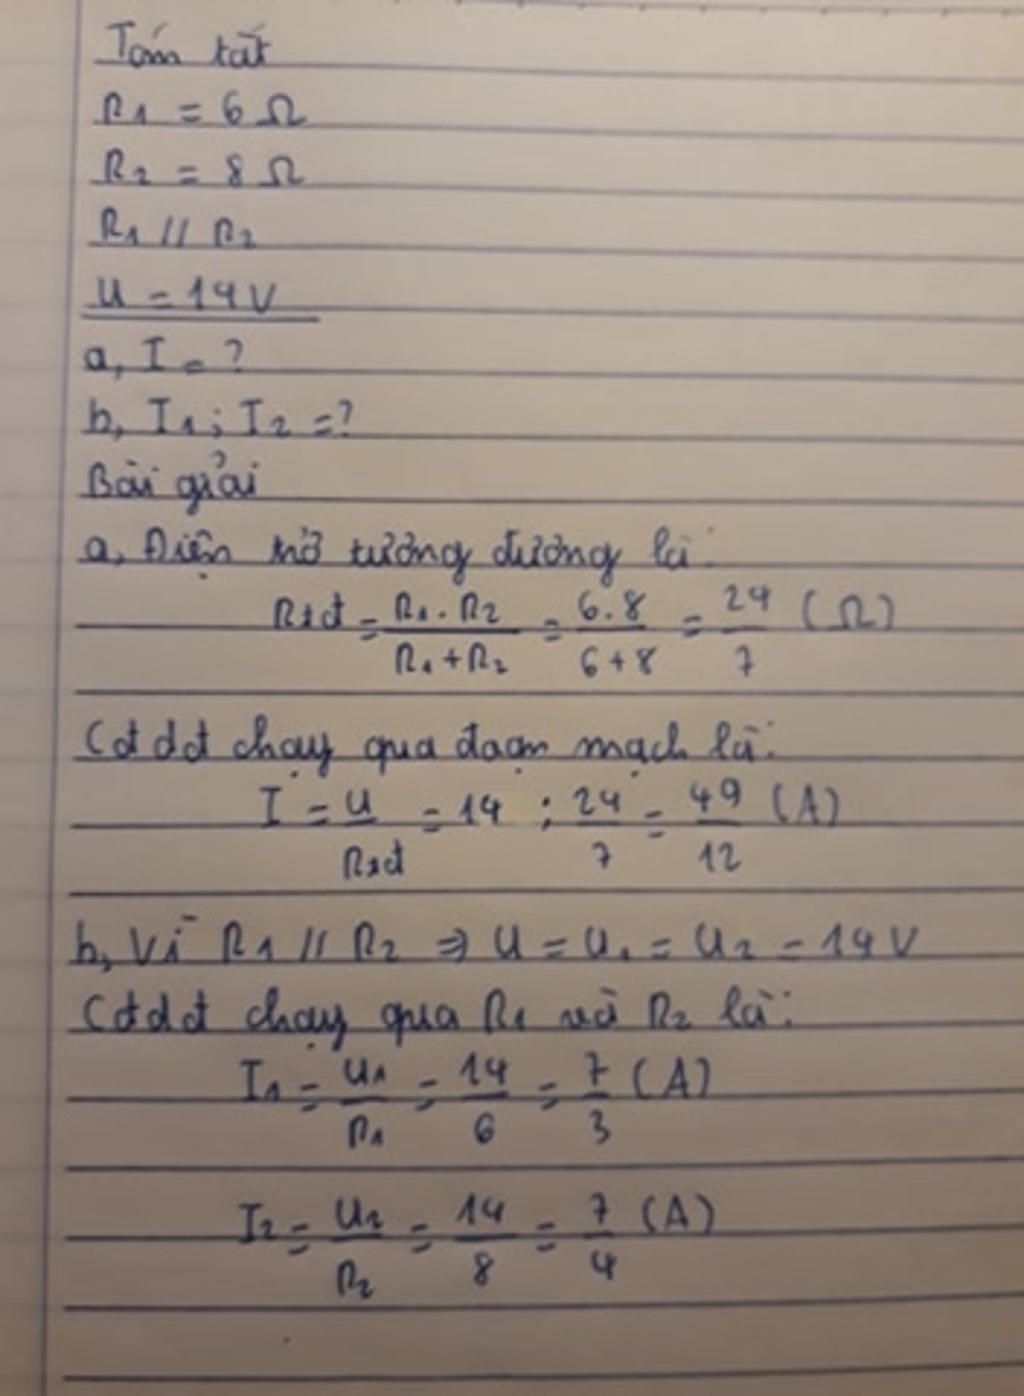 Tóm tắt
R1 = 6 Ω
R2 = 8 Ω
R1 // R2
U = 14V
a, I = ?
b, I1; I2 = ?
Bài giải
a, Điện trở tương đương là:
Rtđ = R1.R2 / R1+R2 = 6.8 / 6+8 = 24/7 (Ω)
Cđdđ chạy qua đoạn mạch là:
I = U/Rtđ = 14 : 24/7 = 49/12 (A)
b, Vì R1 // R2 ⇒ U = U1 = U2 = 14V
Cđdđ chạy qua R1 và R2 là:
I1 = U1/R1 = 14/6 = 7/3 (A)
I2 = U2/R2 = 14/8 = 7/4 (A)